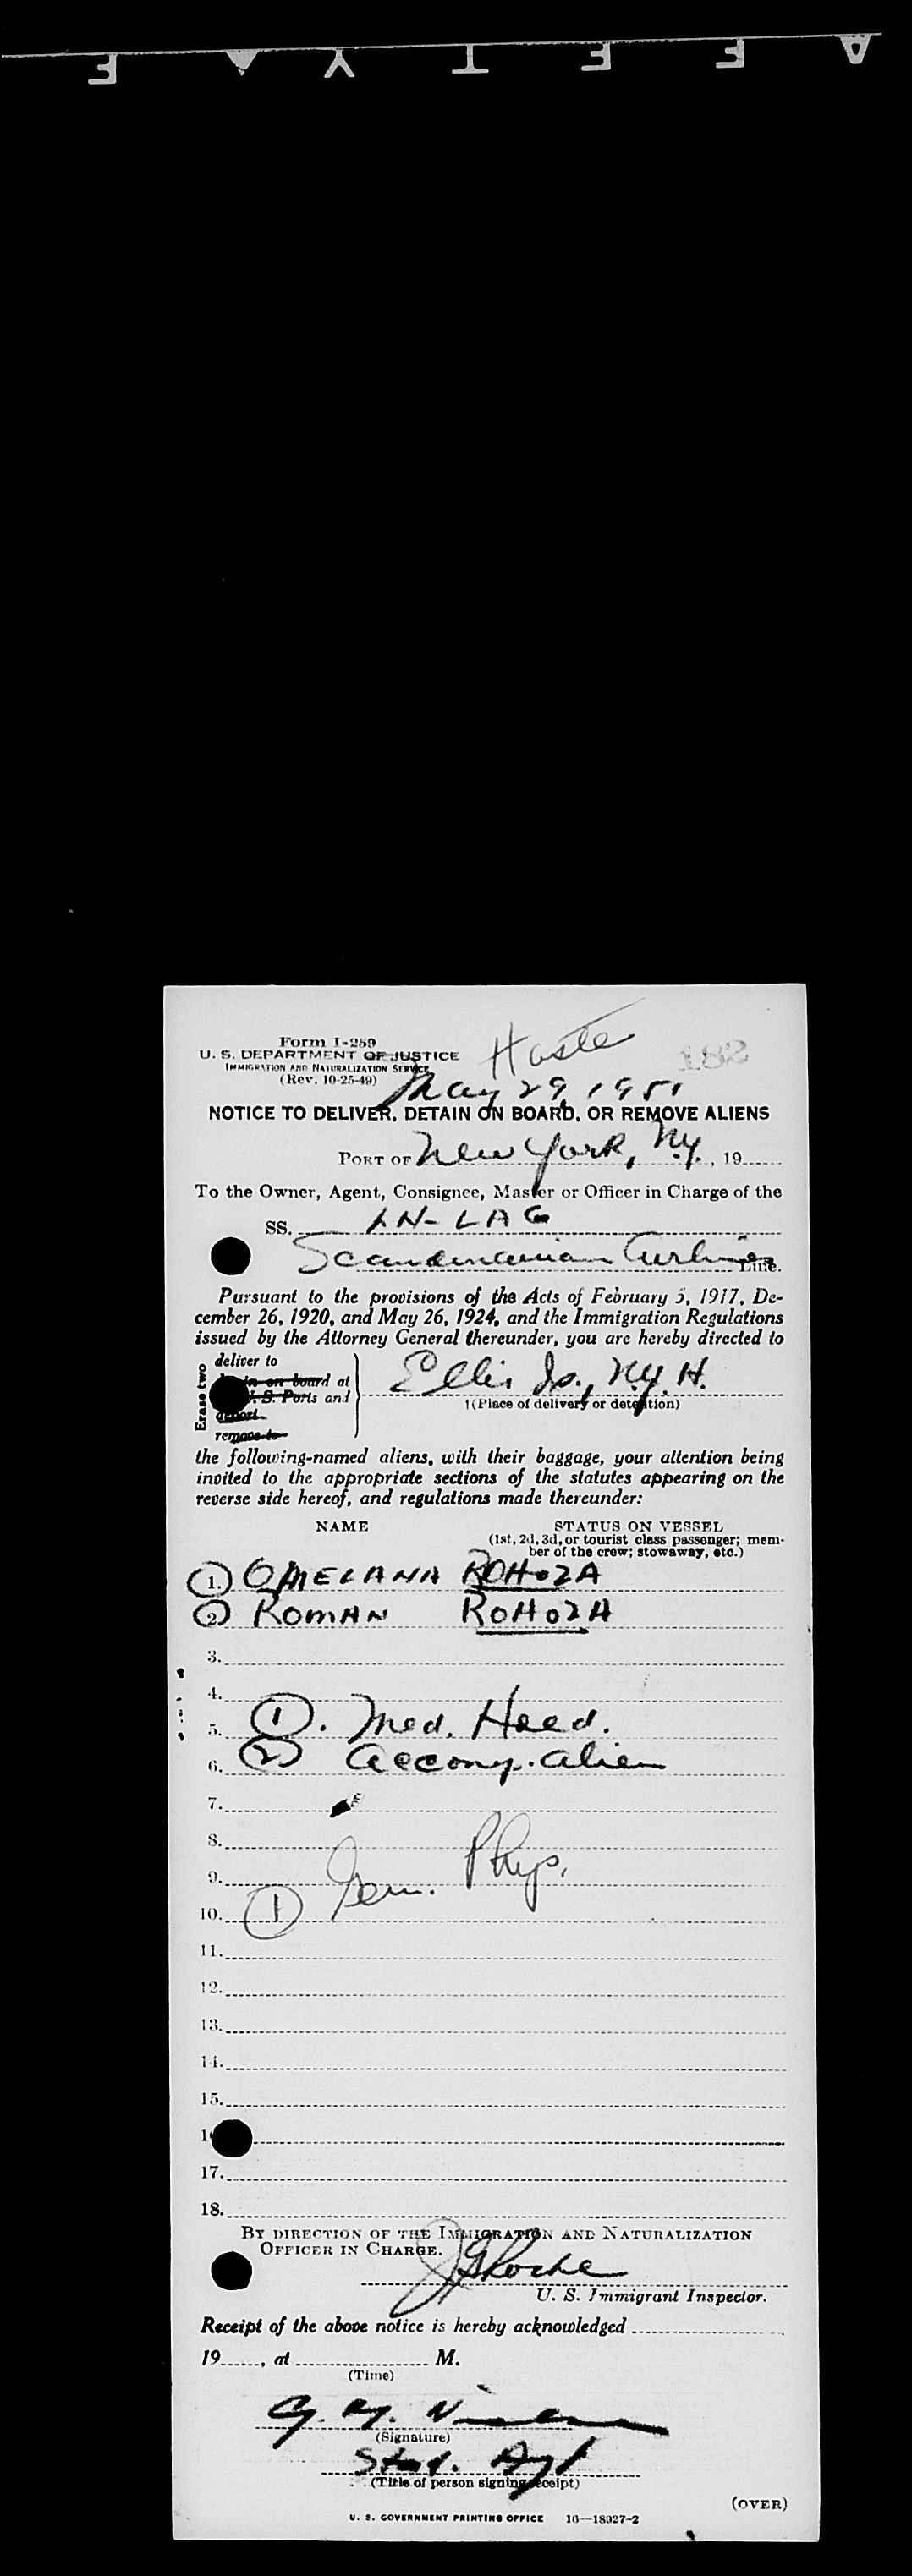 Form I-259
U. S. DEPARTMENT OF JUSTICE
IMMIGRATION AND NATURALIZATION SERVICE
(Rev. 10-25-49)
May 29, 1951
NOTICE TO DELIVER, DETAIN ON BOARD, OR REMOVE ALIENS
PORT OF New York, N.Y., 19
To the Owner, Agent, Consignee, Master or Officer in Charge of the
SS. LN-LAG
Scandinavian Airlines Line.
Pursuant to the provisions of the Acts of February 5, 1917, De-
cember 26, 1920, and May 26, 1924, and the Immigration Regulations
issued by the Attorney General thereunder, you are hereby directed to
Erase two
deliver to
on board at
U. S. Ports and
deport
remove to
Ellis Is., N.Y.H.
†(Place of delivery or detention)
the following-named aliens, with their baggage, your attention being
invited to the appropriate sections of the statutes appearing on the
reverse side hereof, and regulations made thereunder:
NAME STATUS ON VESSEL
(1st, 2d, 3d, or tourist class passenger; mem-
ber of the crew; stowaway, etc.)
1. OMELANA ROHOZA
2. ROMAN ROHOZA
3.
4.
5. 1. Med. Heed.
6. 2 accomp. alien
7.
8.
9. Gen. Phys.
10. 1
11.
12.
13.
14.
15.
16
17.
18.
BY DIRECTION OF THE IMMIGRATION AND NATURALIZATION
OFFICER IN CHARGE.
U. S. Immigrant Inspector.
Receipt of the above notice is hereby acknowledged
19, at M.
(Time)
(Signature)
Stat. Agt
(Title of person signing receipt)
(OVER)
U. S. GOVERNMENT PRINTING OFFICE 16—18927-2